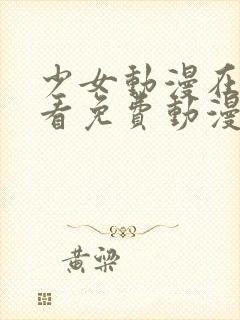 少女動漫在
看免費動漫
黃梁